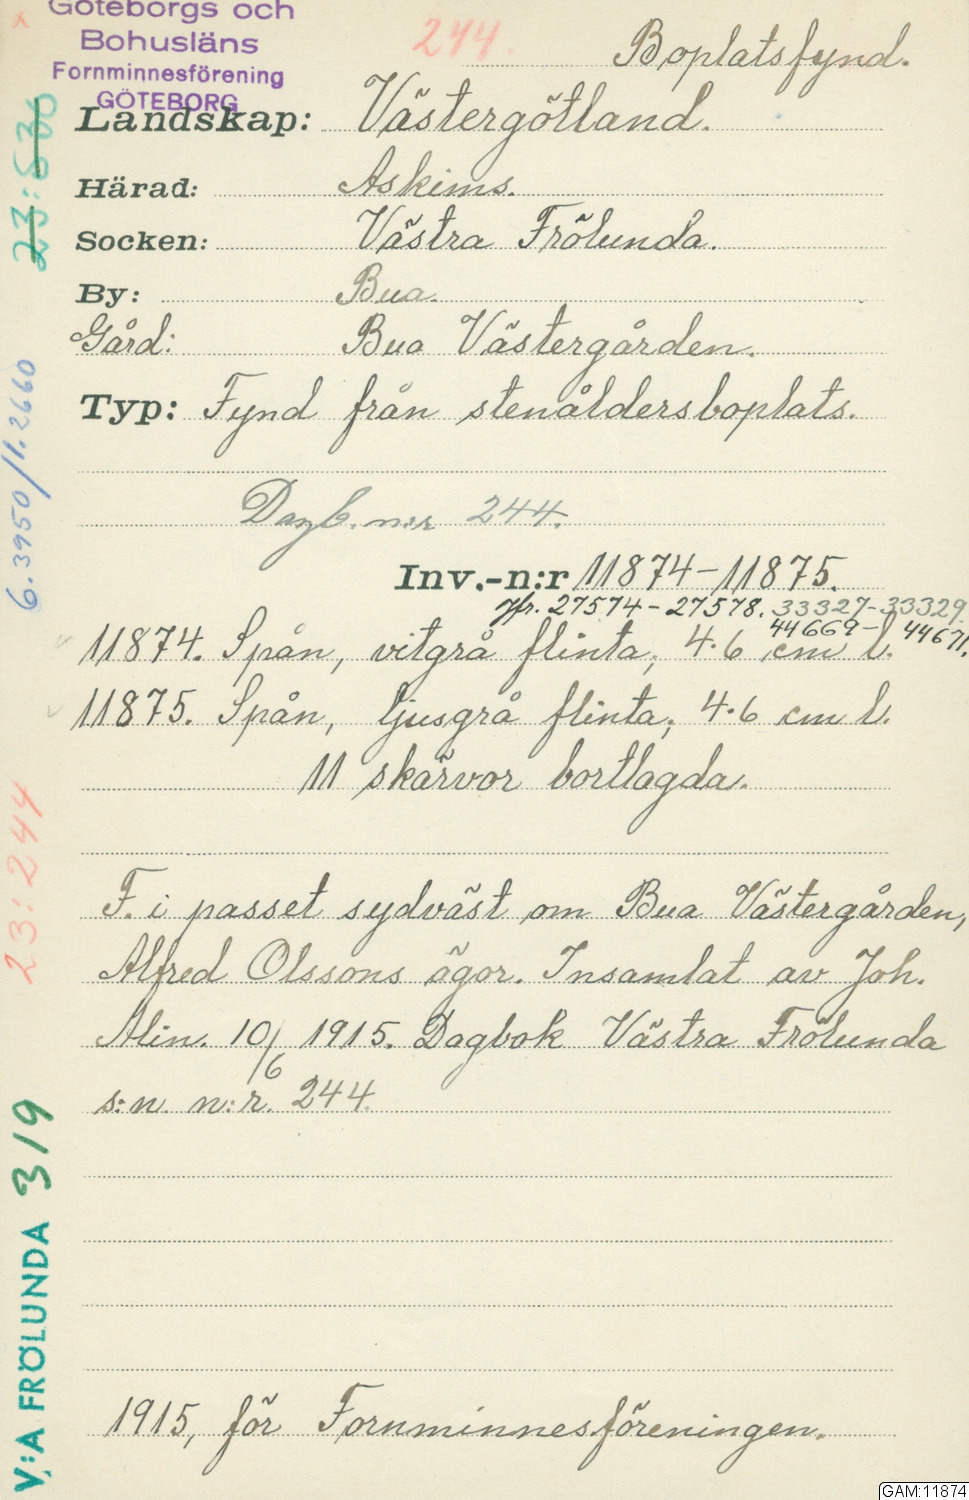 Göteborgs och
Bohusläns
Fornminnesförening
GÖTEBORG
244.
Boplatsfynd.
Landskap: Västergötland.
Härad: Askims.
Socken: Västra Frölunda.
By: Bua.
Gård: Bua Västergården.
Typ: Fynd från stenåldersboplats.
Dagb. n:r 244.
Inv.-n:r 11874-11875.
Jfr. 27574-27578. 33327-33329.
44669-44671.
11874. Spån, vitgrå flinta, 4.6 cm l.
11875. Spån, ljusgrå flinta, 4.6 cm l.
11 skärvor bortlagda.
F. i passet sydväst om Bua Västergården,
Alfred Olssons ägor. Insamlat av Joh.
Alin. 10/6 1915. Dagbok Västra Frölunda
s:n n:r. 244.
1915, för Fornminnesföreningen.
23:530
6.3950/1.2660
23:244
V:A FRÖLUNDA 319
GAM:11874